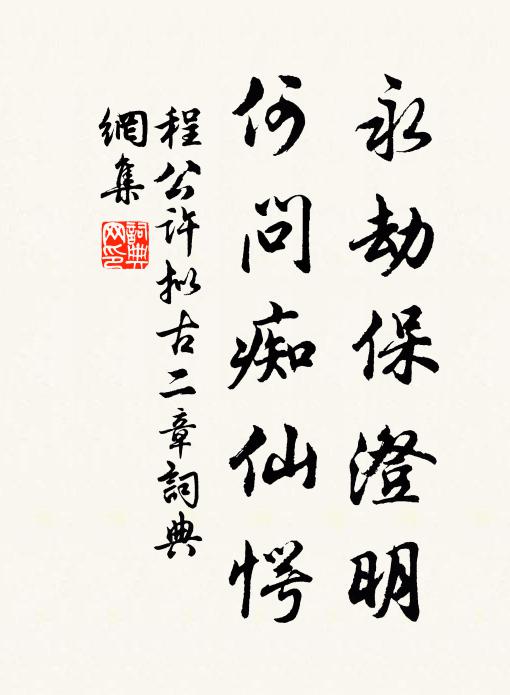 永劫保澄明
何问痴仙愕
程公许拟古二章詞典
網集
詞典网印